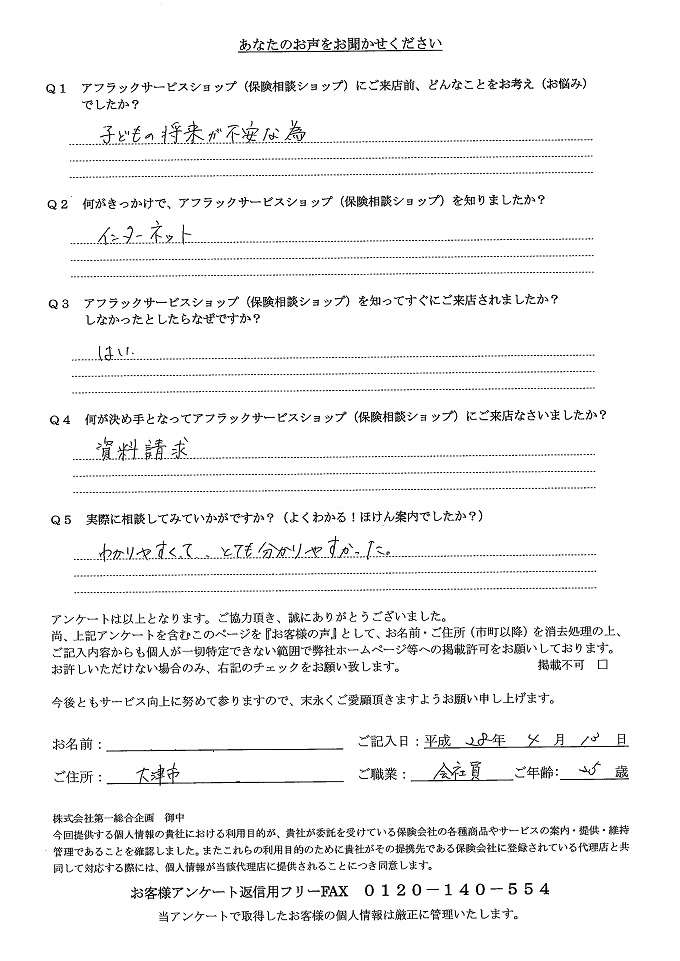 あなたのお声をお聞かせください
Q1 アフラックサービスショップ（保険相談ショップ）にご来店前、どんなことをお考え（お悩み）
でしたか？
子どもの将来が不安な為
Q2 何がきっかけで、アフラックサービスショップ（保険相談ショップ）を知りましたか？
インターネット
Q3 アフラックサービスショップ（保険相談ショップ）を知ってすぐにご来店されましたか？
しなかったとしたらなぜですか？
はい
Q4 何が決め手となってアフラックサービスショップ（保険相談ショップ）にご来店なさいましたか？
資料請求
Q5 実際に相談してみていかがですか？（よくわかる！ほけん案内でしたか？）
わかりやすくて、とても分かりやすかった。
アンケートは以上となります。ご協力頂き、誠にありがとうございました。
尚、上記アンケートを含むこのページを『お客様の声』として、お名前・ご住所（市町以降）を消去処理の上、
ご記入内容からも個人が一切特定できない範囲で弊社ホームページ等への掲載許可をお願いしております。
お許しいただけない場合のみ、右記のチェックをお願い致します。 掲載不可 □
今後ともサービス向上に努めて参りますので、末永くご愛顧頂きますようお願い申し上げます。
お名前： ご記入日：平成 28年 4 月 18 日
ご住所： 大津市 ご職業： 会社員 ご年齢： 25 歳
株式会社第一総合企画 御中
今回提供する個人情報の貴社における利用目的が、貴社が委託を受けている保険会社の各種商品やサービスの案内・提供・維持
管理であることを確認しました。またこれらの利用目的のために貴社がその提携先である保険会社に登録されている代理店と共
同して対応する際には、個人情報が当該代理店に提供されることにつき同意します。
お客様アンケート返信用フリーFAX 0120－140－554
当アンケートで取得したお客様の個人情報は厳正に管理いたします。